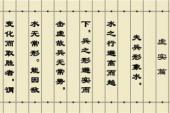 虚实篇
夫兵形象水，
水之行避高而趋
下，兵之形避实而
击虚。故兵无常势，
水无常形。能因敌
变化而取胜者，谓